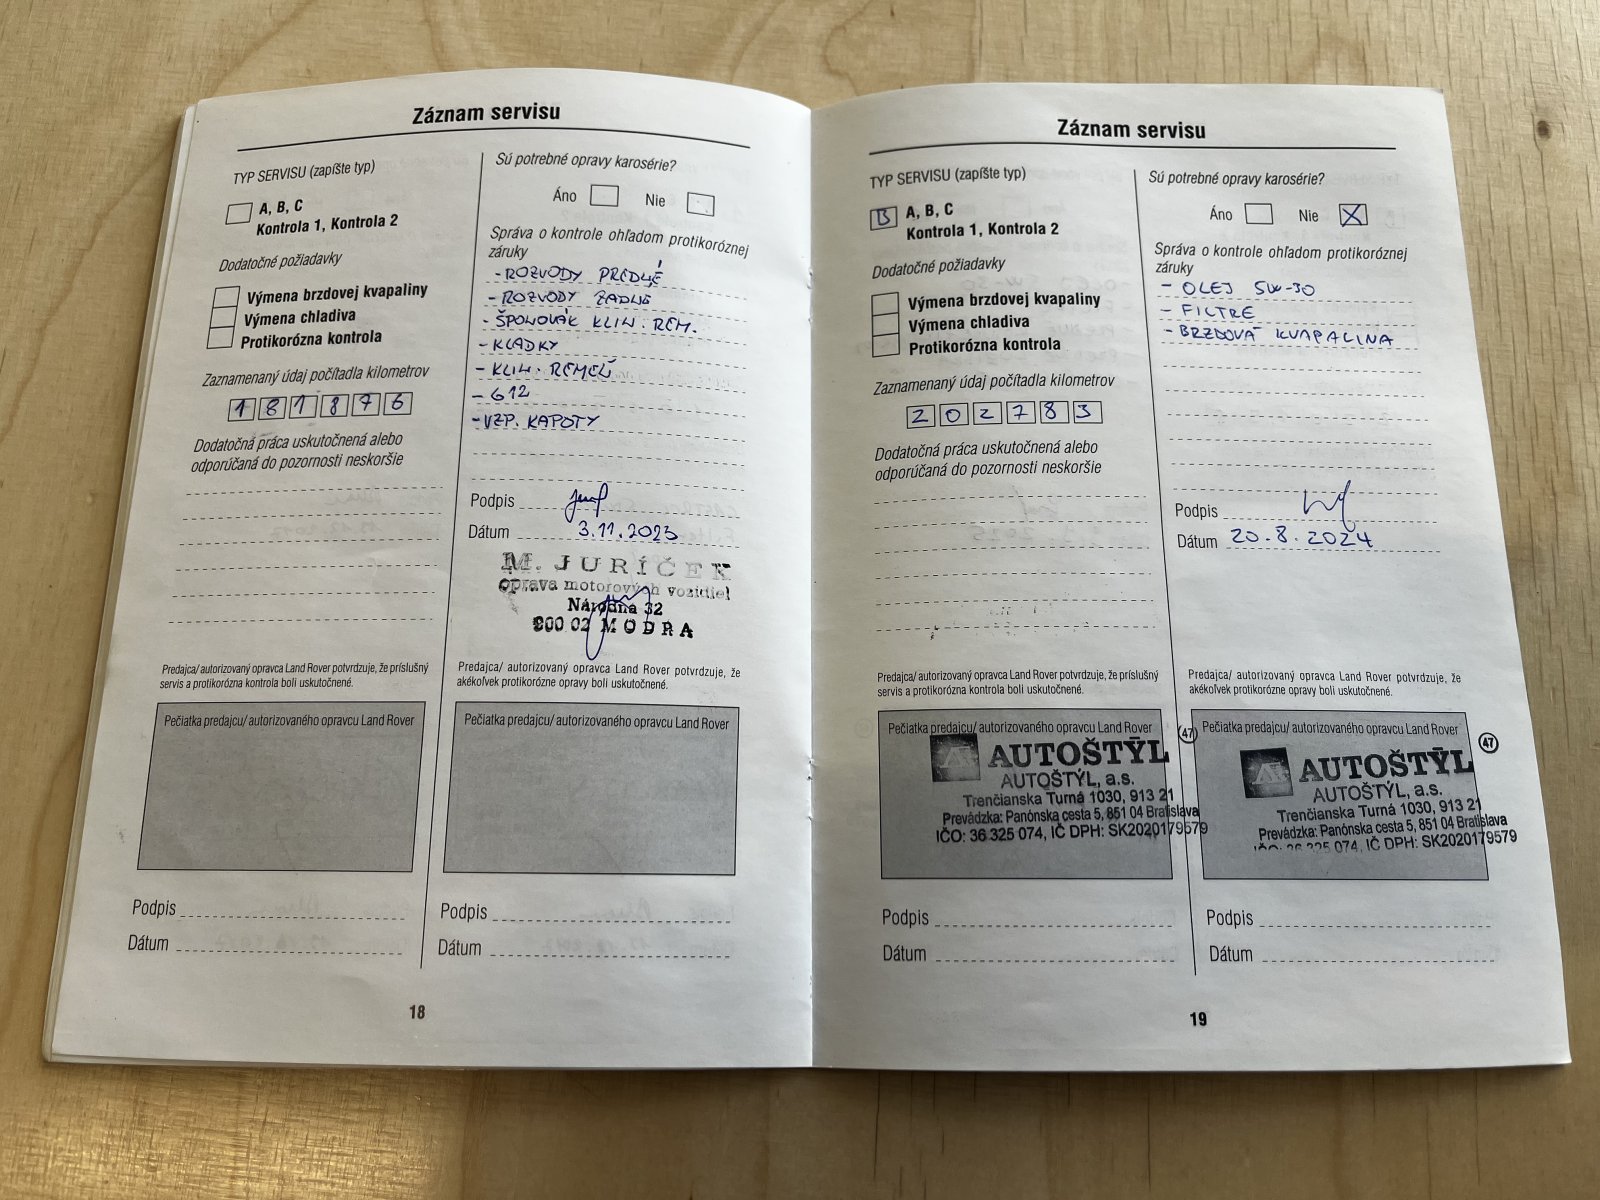 Záznam servisu
TYP SERVISU (zapíšte typ)
A, B, C
Kontrola 1, Kontrola 2
Dodatočné požiadavky
Výmena brzdovej kvapaliny
Výmena chladiva
Protikorózna kontrola
Zaznamenaný údaj počítadla kilometrov
181876
Dodatočná práca uskutočnená alebo
odporúčaná do pozornosti neskoršie
Predajca/ autorizovaný opravca Land Rover potvrdzuje, že príslušný
servis a protikorózna kontrola boli uskutočnené.
Pečiatka predajcu/ autorizovaného opravcu Land Rover
Podpis
Dátum
Sú potrebné opravy karosérie?
Áno Nie
Správa o kontrole ohľadom protikoróznej
záruky
- ROZVODY PREDNÉ
- ROZVODY ZADNÉ
- ŠPONOVÁK KLIN. REM.
- KLADKY
- KLIN. REMEŇ
- G12
- VZP. KAPOTY
Podpis
Dátum 3.11.2023
M. JURÍČEK
oprava motorových vozidiel
Národná 32
900 02 MODRA
Predajca/ autorizovaný opravca Land Rover potvrdzuje, že
akékoľvek protikorózne opravy boli uskutočnené.
Pečiatka predajcu/ autorizovaného opravcu Land Rover
Podpis
Dátum
18
Záznam servisu
TYP SERVISU (zapíšte typ)
B A, B, C
Kontrola 1, Kontrola 2
Dodatočné požiadavky
Výmena brzdovej kvapaliny
Výmena chladiva
Protikorózna kontrola
Zaznamenaný údaj počítadla kilometrov
202783
Dodatočná práca uskutočnená alebo
odporúčaná do pozornosti neskoršie
Predajca/ autorizovaný opravca Land Rover potvrdzuje, že príslušný
servis a protikorózna kontrola boli uskutočnené.
Pečiatka predajcu/ autorizovaného opravcu Land Rover
47
AUTOŠTÝL
AUTOŠTÝL, a.s.
Trenčianska Turná 1030, 913 21
Prevádzka: Panónska cesta 5, 851 04 Bratislava
IČO: 36 325 074, IČ DPH: SK2020179579
Podpis
Dátum
Sú potrebné opravy karosérie?
Áno Nie X
Správa o kontrole ohľadom protikoróznej
záruky
- OLEJ 5W-30
- FILTRE
- BRZDOVÁ KVAPALINA
Podpis
Dátum 20.8.2024
Predajca/ autorizovaný opravca Land Rover potvrdzuje, že
akékoľvek protikorózne opravy boli uskutočnené.
Pečiatka predajcu/ autorizovaného opravcu Land Rover
47
AUTOŠTÝL
AUTOŠTÝL, a.s.
Trenčianska Turná 1030, 913 21
Prevádzka: Panónska cesta 5, 851 04 Bratislava
IČO: 36 325 074, IČ DPH: SK2020179579
Podpis
Dátum
19